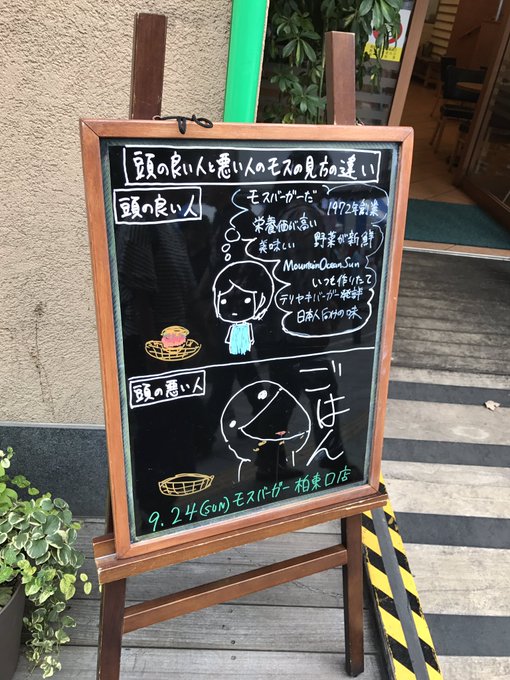 頭の良い人と悪い人のモスの見方の違い
頭の良い人
モスバーガーだ
1972年創業
栄養価が高い
美味しい 野菜が新鮮
MountainOceanSun
いつも作りたて
テリヤキバーガー発祥
日本人向けの味
頭の悪い人
ごはん
9.24(SUN) モスバーガー 柏東口店